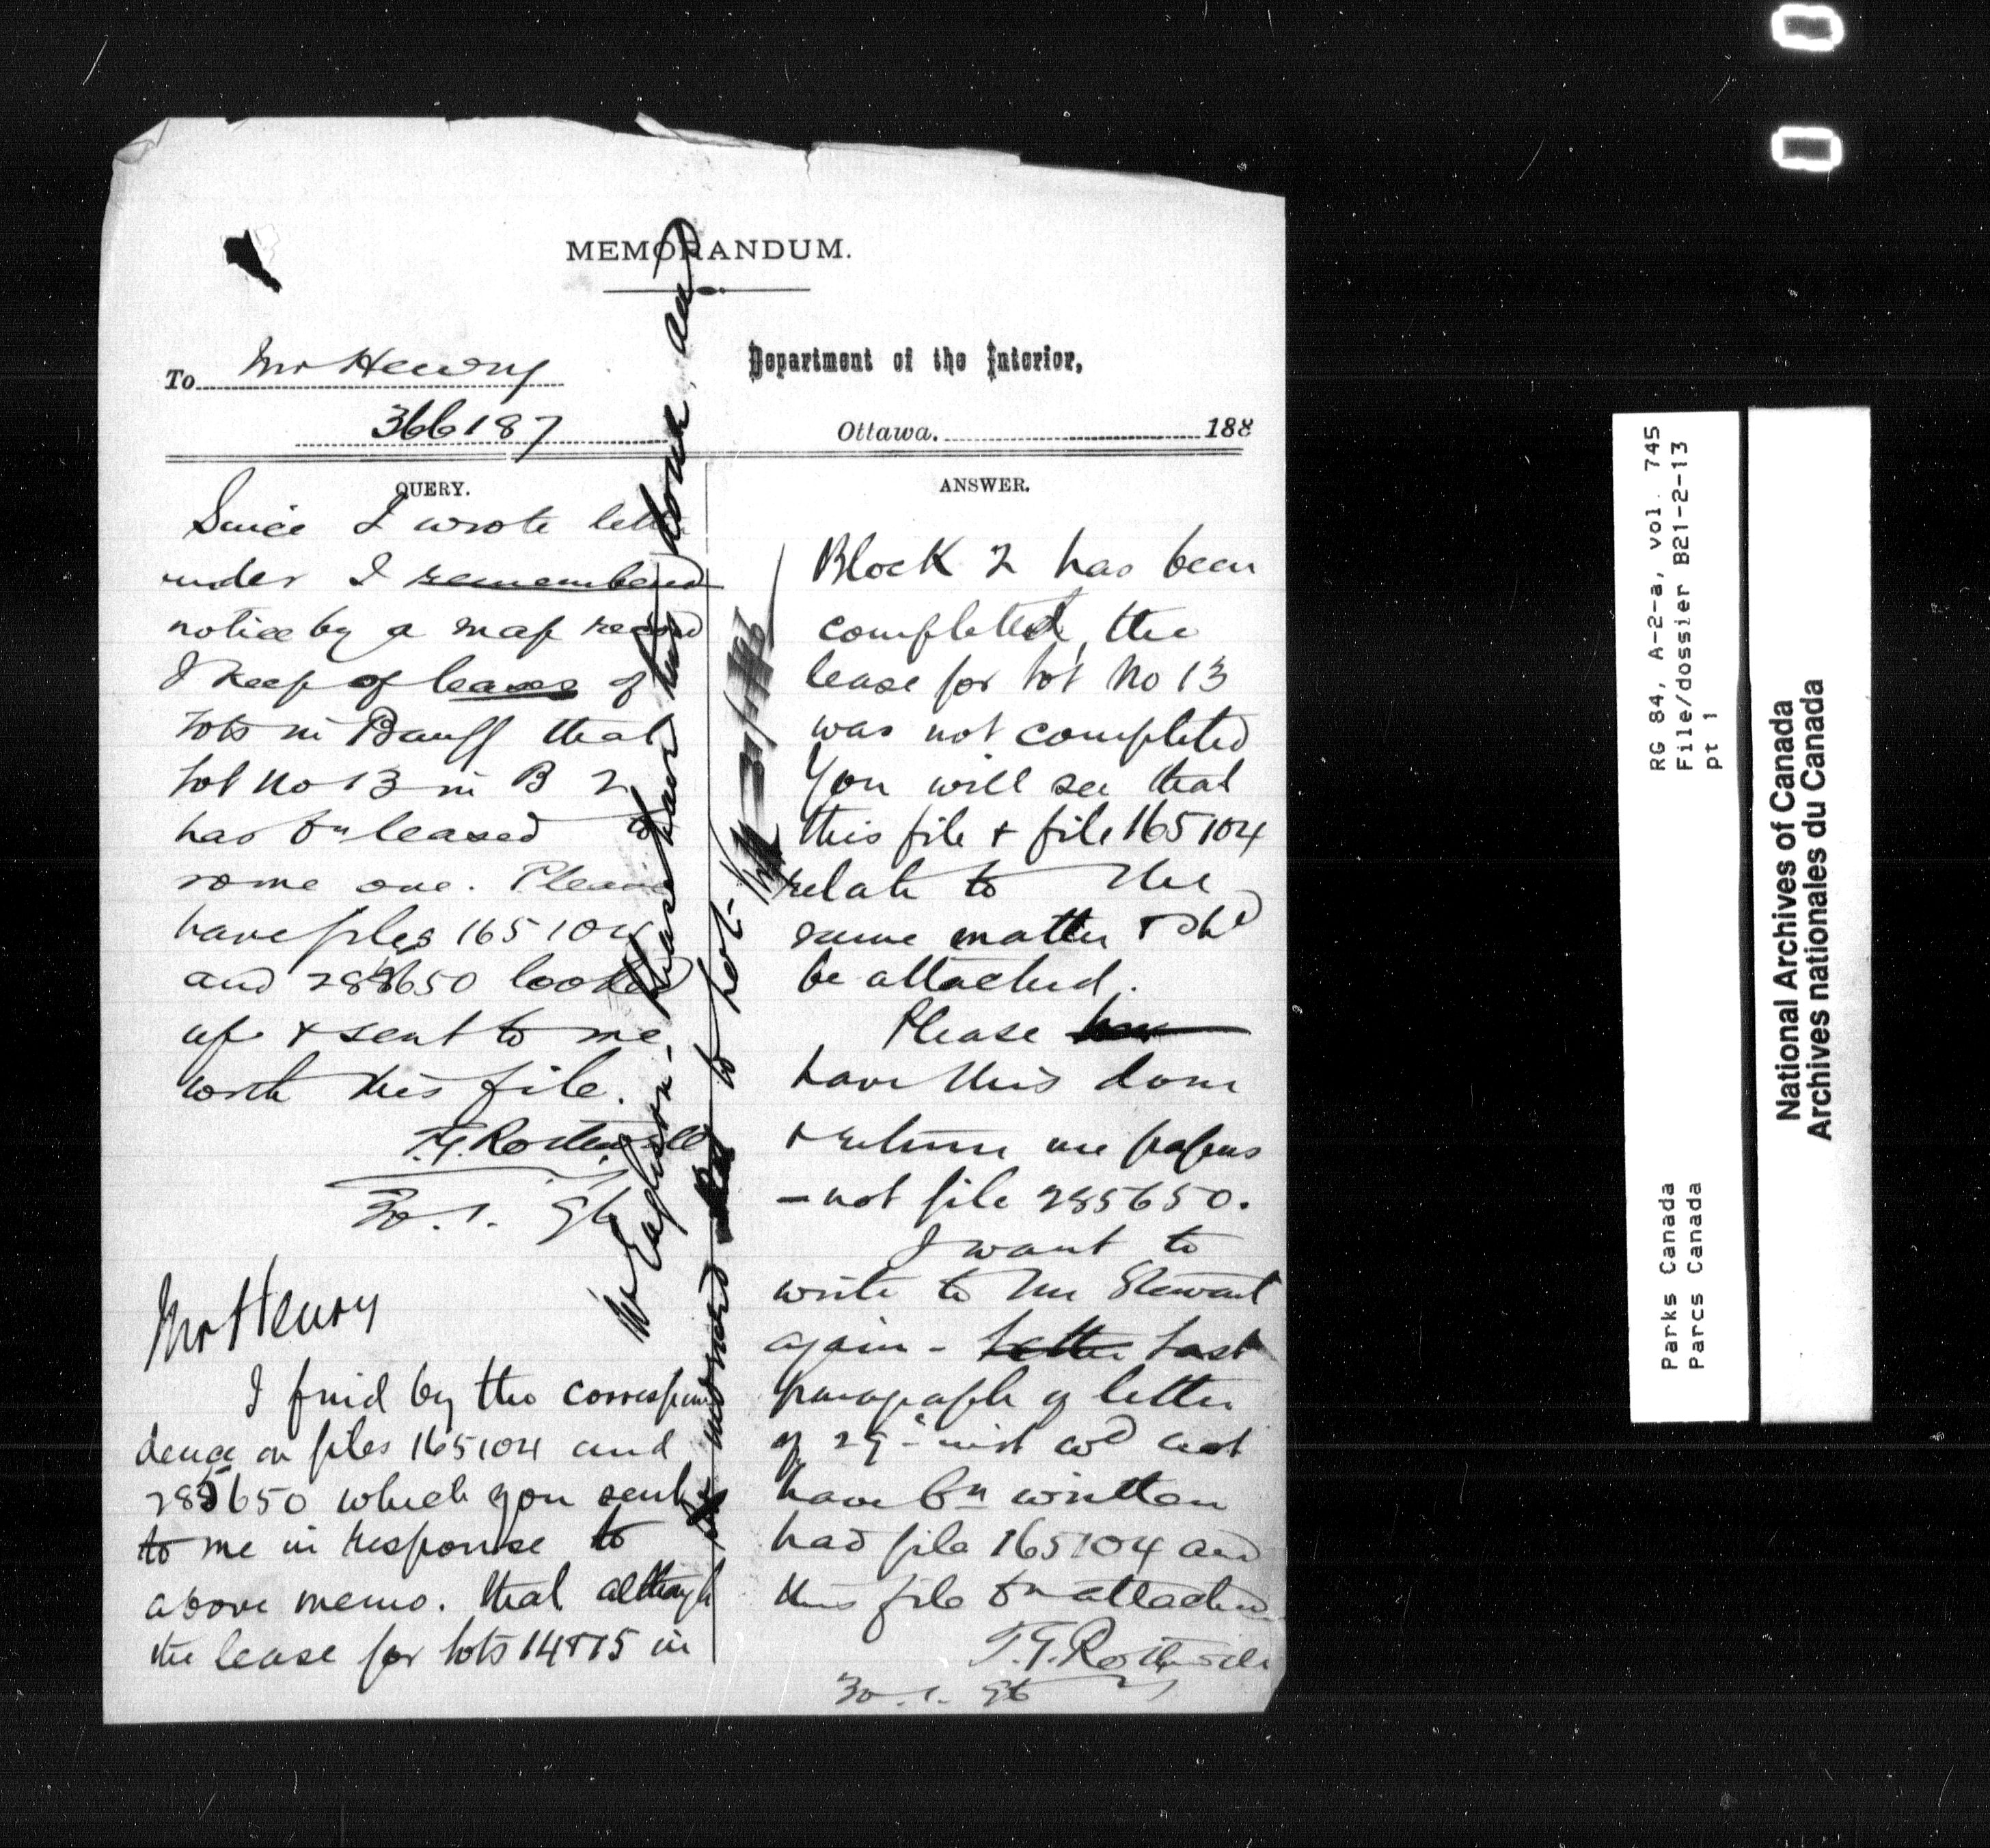 MEMORANDUM.
To Mr Henry
366187
Department of the Interior,
Ottawa. 188
QUERY.
Since I wrote letter
under I remembered
notice by a map record
I keep of leases of
lots in Banff that
Lot No 13 in B 2
has bn leased to
some one. Please
have files 165104
and 285650 looked
up & sent to me
with this file.
T.G. Rothwell
30. 1. 96
Mr Henry
I find by the correspon
dence on files 165104 and
285650 which you sent
to me in response to
above memo. that although
the lease for lots 14 & 15 in
ANSWER.
Block 2 has been
completed, the
lease for Lot No 13
was not completed
You will see that
this file & file 165104
relate to the
same matter & shd
be attached.
Please
have this done
& return me papers
- not file 285650.
I want to
write to Mr Stewart
again - Letter Last
paragraph of letter
of 29th inst wd not
have bn written
had file 165104 and
this file bn attached
T.G. Rothwell
30. 1. 96
Mr English. Please have this done, and
RG 84, A-2-a, vol. 745
File/dossier B21-2-13
pt 1
Parks Canada
Parcs Canada
National Archives of Canada
Archives nationales du Canada